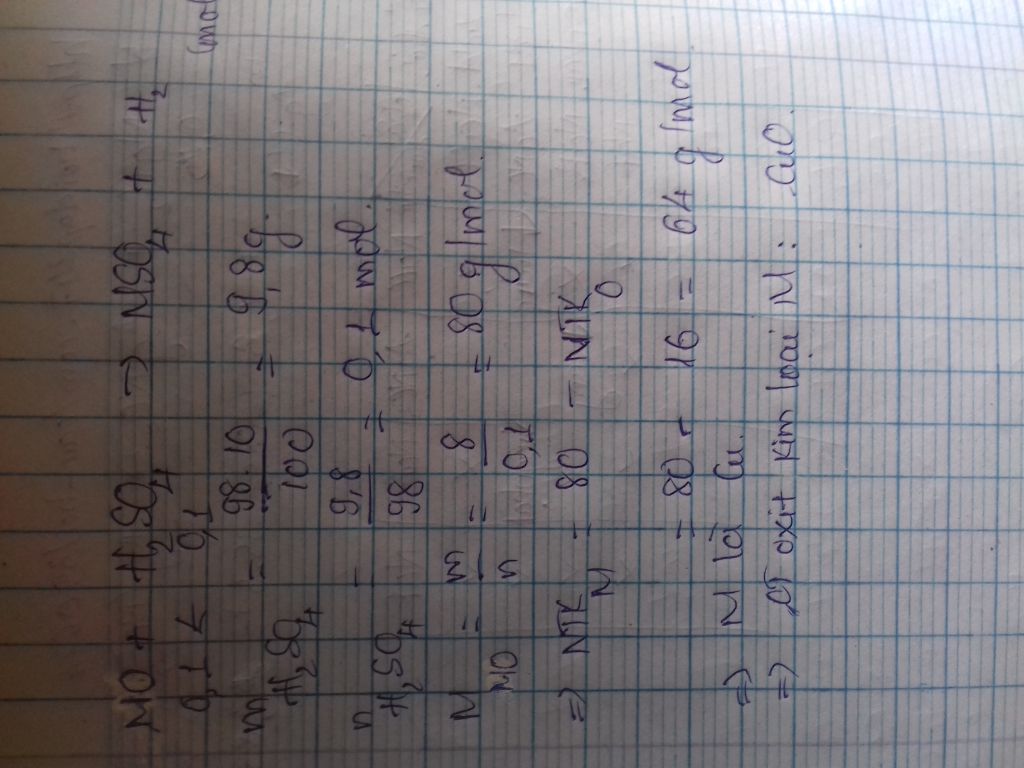 MO + H2SO4 → MSO4 + H2
0,1 ← 0,1 (mol
m H2SO4 = 98.10 / 100 = 9,8g.
n H2SO4 = 9,8 / 98 = 0,1 mol.
M MO = m / n = 8 / 0,1 = 80 g/mol.
=> NTK M = 80 - NTK O
= 80 - 16 = 64 g/mol
=> M là Cu.
=> CT oxit kim loại M : CuO.